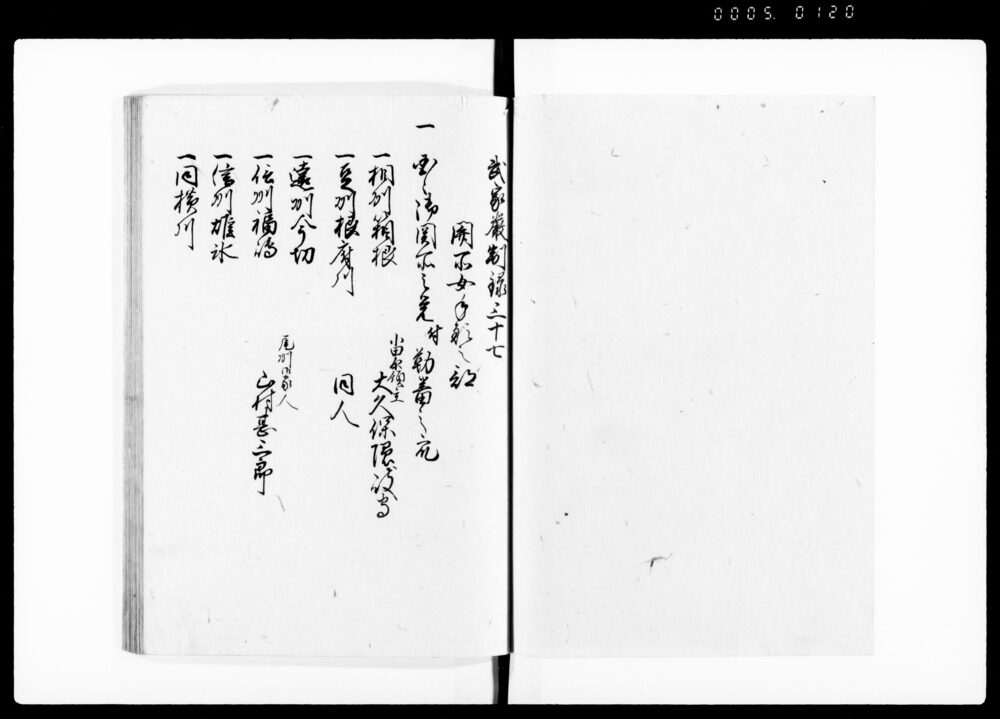 0005. 0120
武家厳制録三十七
関所女手形之部
一 国々御関所之覚 付 勤番之衆
一相州箱根 小田原領主 大久保隠岐守
一豆州根府川 同人
一遠州今切
一信州福嶋 尾州御家人 山村甚三郎
一信州碓氷
一同横川